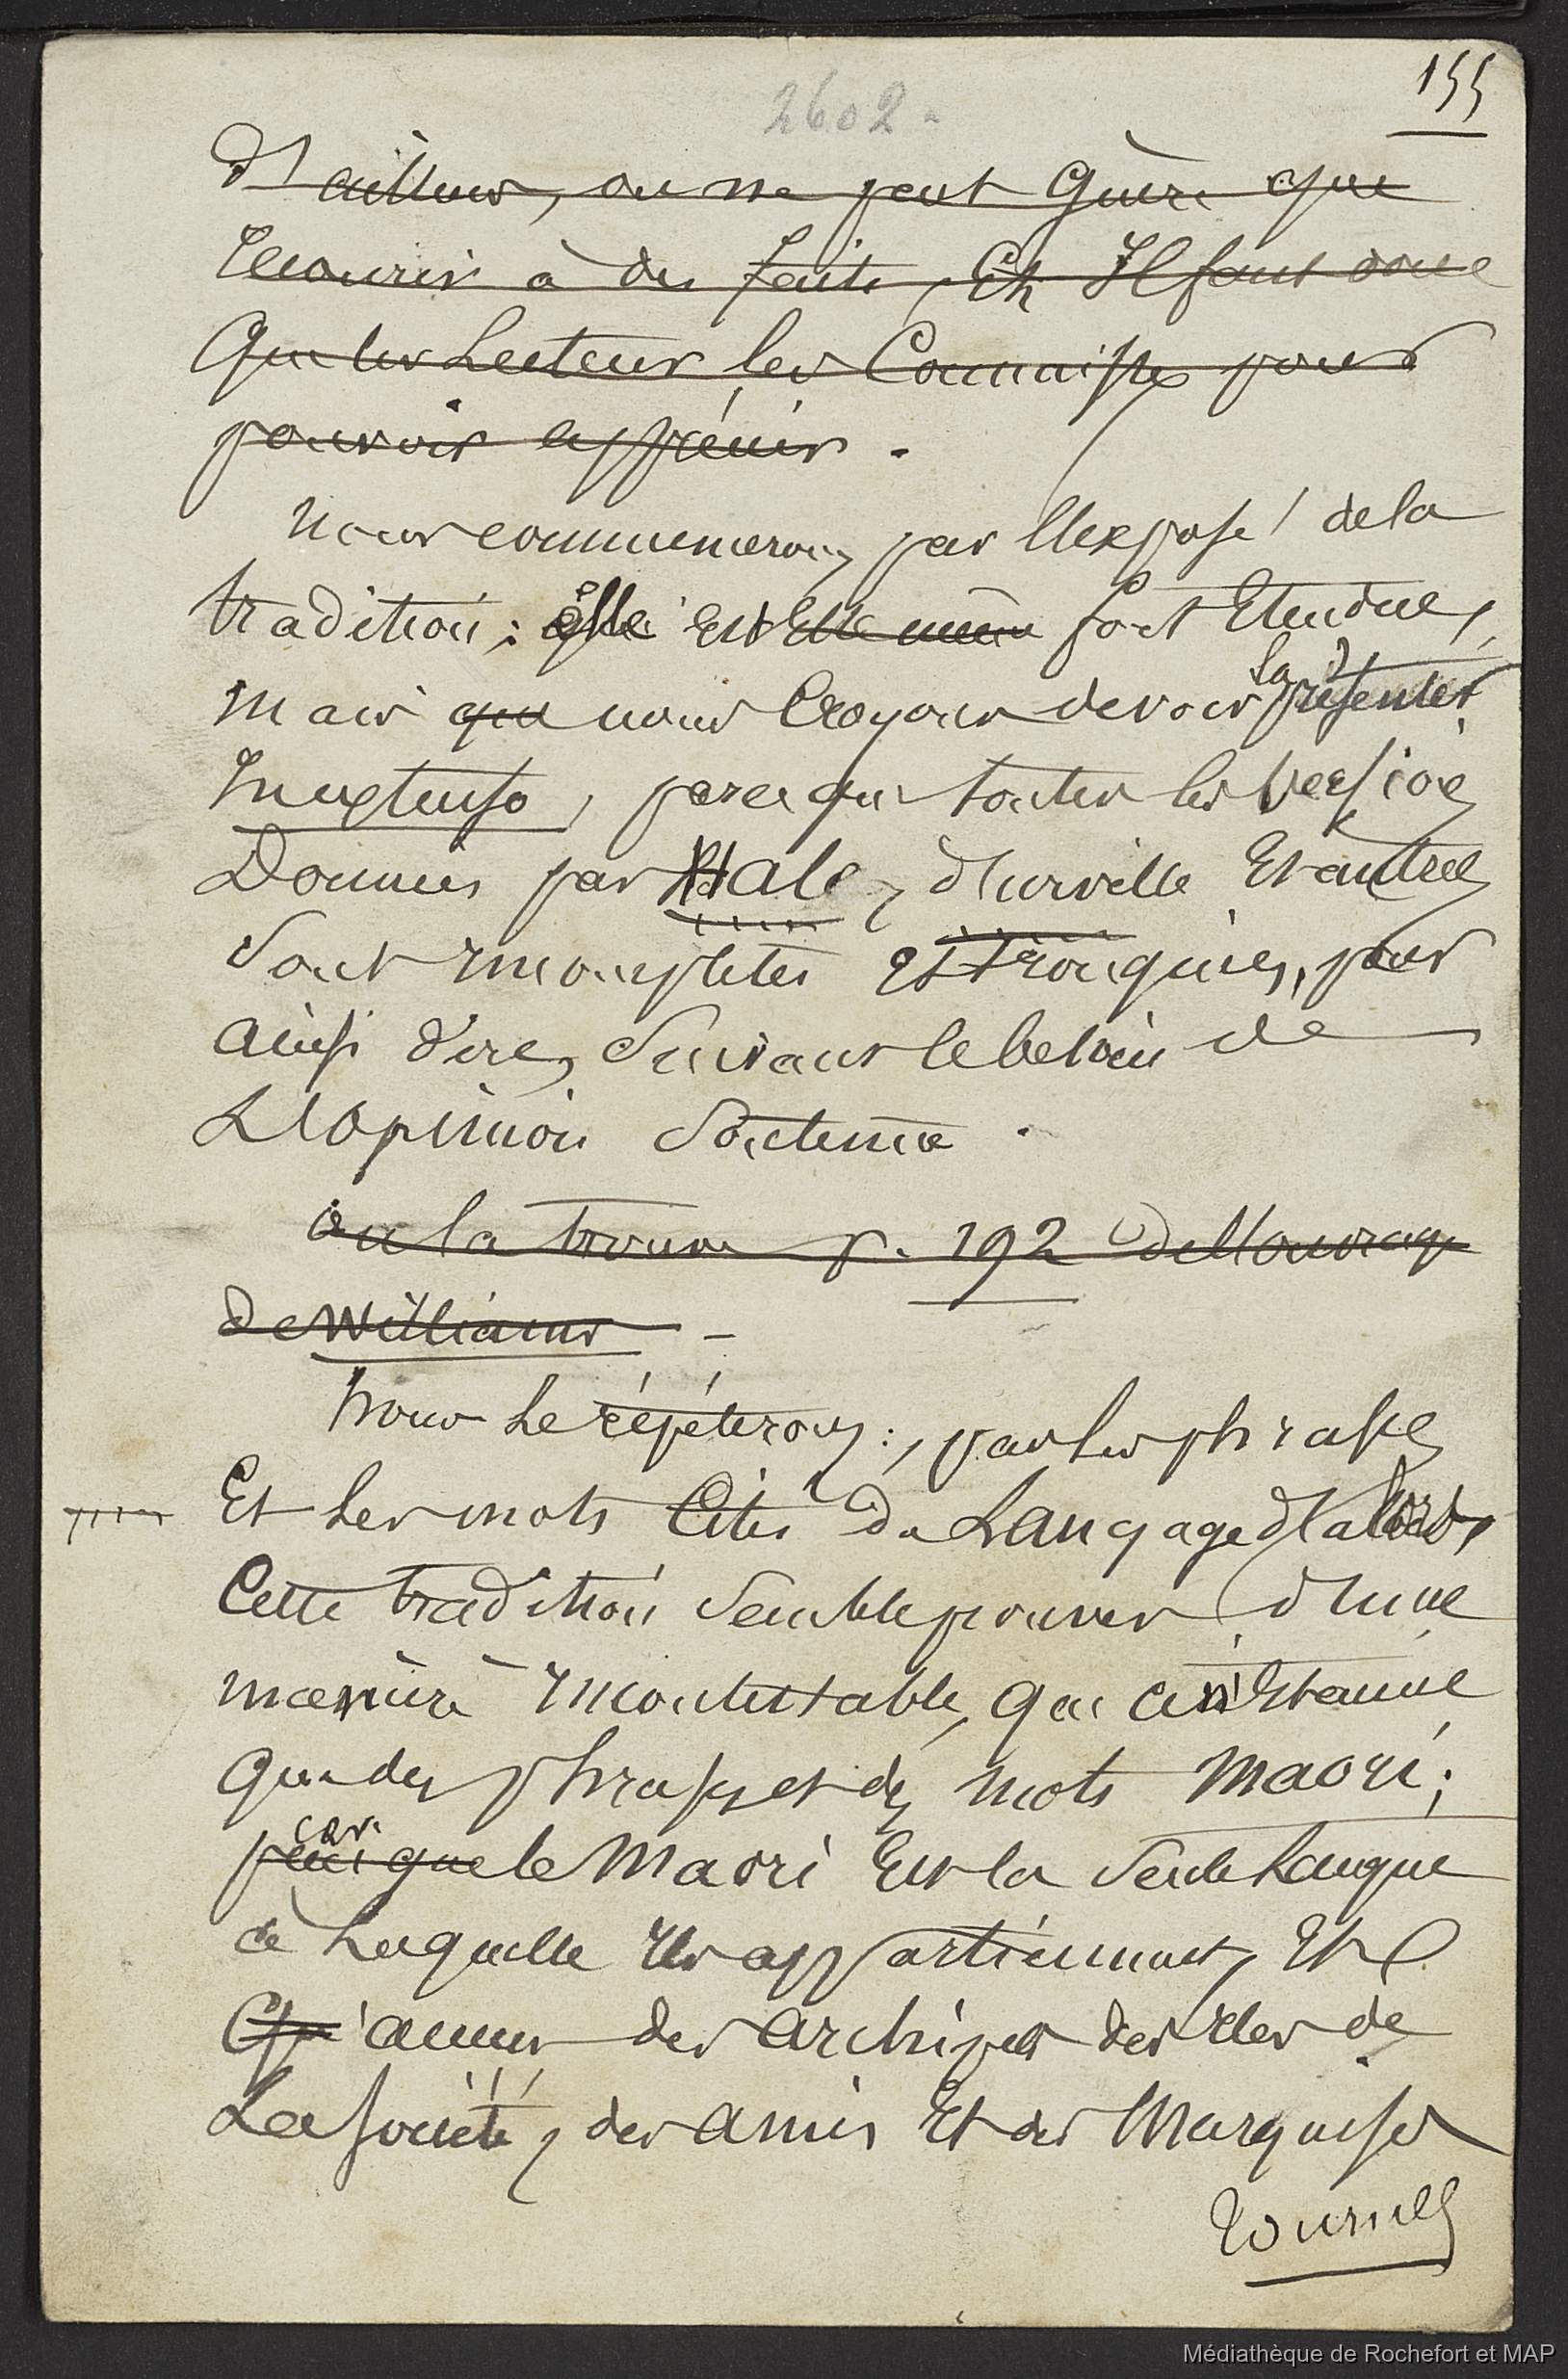 155
2602 -
d'ailleurs, on ne peut guère que
recourir à des faits, Et Il faut donc
que les Lecteurs les Connaisse pour
pouvoir apprécier.
nous commencerons par l'exposé de la
tradition : elle est Elle même fort Etendue,
mais que nous croyons devoir la présenter
In extenso, parce que toutes les versions
Données par Hale, d'urville Et autres
sont incomplètes et tronquées, pour
ainsi dire, suivant le besoin de
L'opinion soutenue.
on la trouve p. 192 de l'ouvrage
de Williams -
Nous Le répéterons :, par les phrases
Et Les mots Cités du Langage d'alors,
Cette tradition semble prouver d'une
manière incontestable, que ce n'Etaient
que des phrases et des mots maori ;
car
puisque le Maori Est la seule Langue
à Laquelle Ils appartiennent, Et
qu'aucun des archipels des Iles de
La société, des amis Et des Marquises
tournez
Médiathèque de Rochefort et MAP